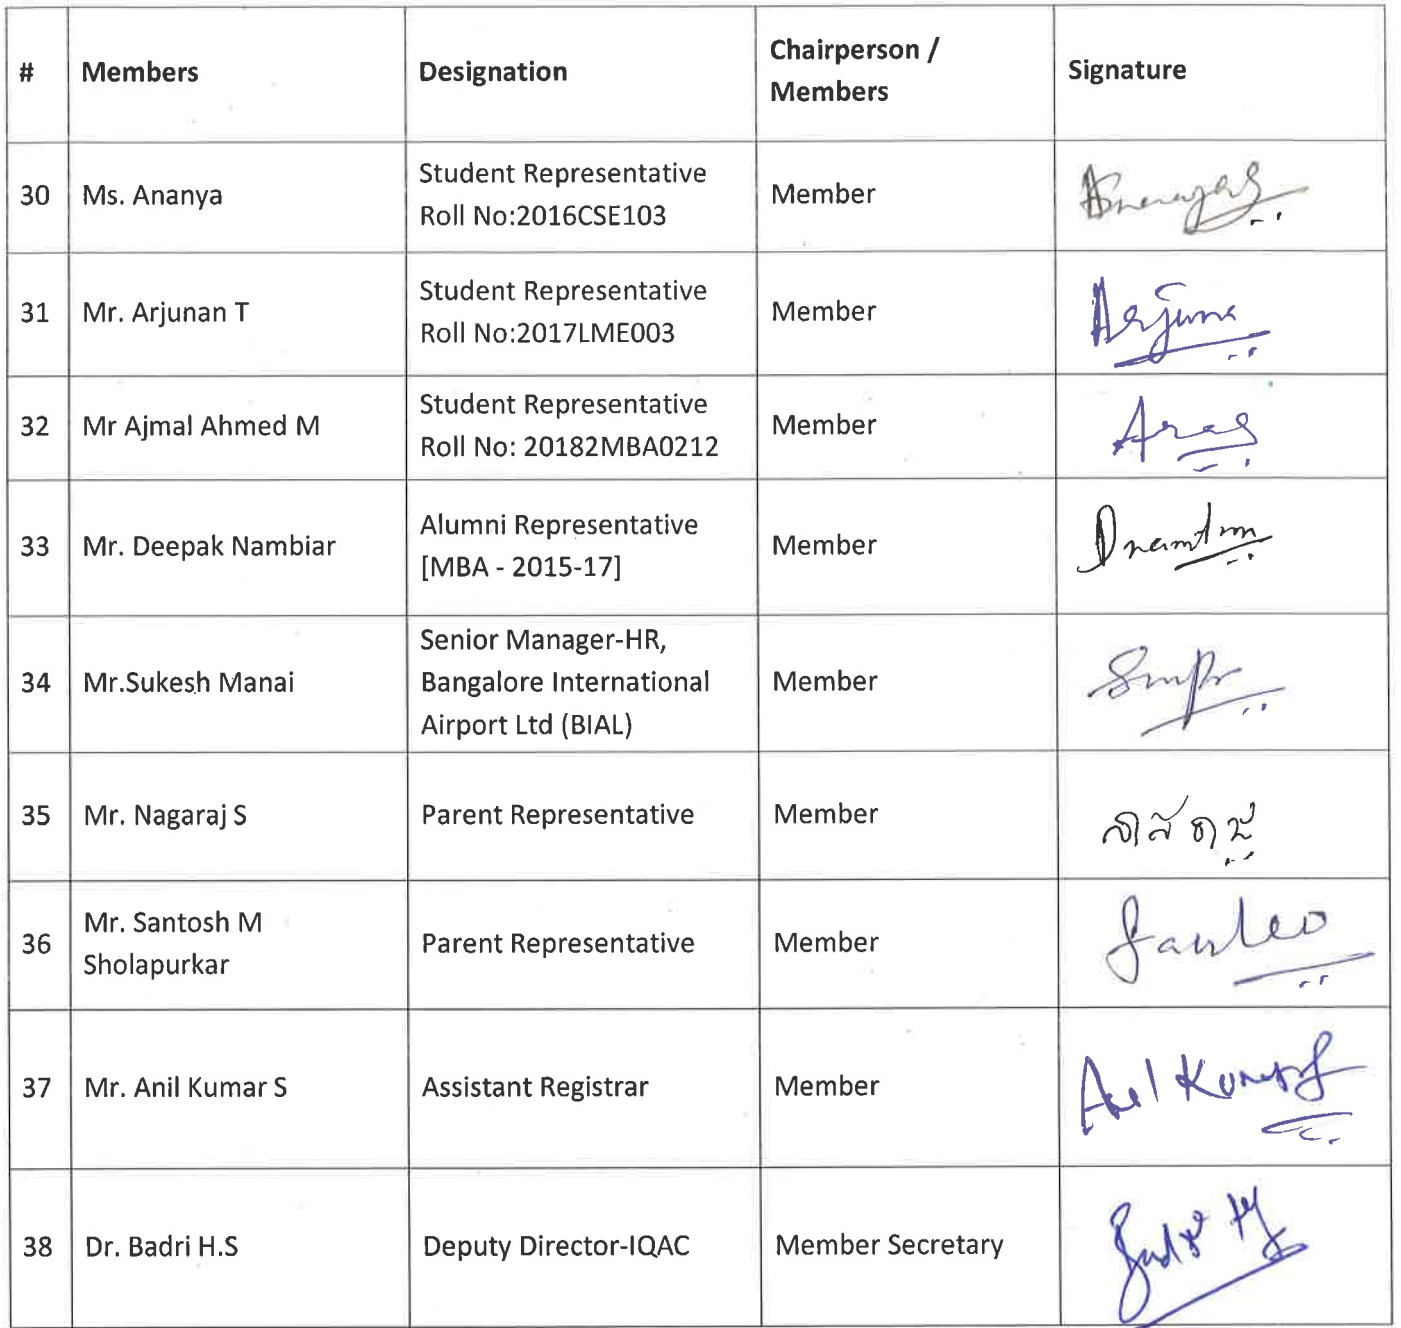 # Members Designation Chairperson / Members Signature
30 Ms. Ananya Student Representative Member
Roll No:2016CSE103
31 Mr. Arjunan T Student Representative Member
Roll No:2017LME003
32 Mr Ajmal Ahmed M Student Representative Member
Roll No: 20182MBA0212
33 Mr. Deepak Nambiar Alumni Representative Member
[MBA - 2015-17]
34 Mr.Sukesh Manai Senior Manager-HR, Member
Bangalore International
Airport Ltd (BIAL)
35 Mr. Nagaraj S Parent Representative Member
36 Mr. Santosh M Parent Representative Member
Sholapurkar
37 Mr. Anil Kumar S Assistant Registrar Member
38 Dr. Badri H.S Deputy Director-IQAC Member Secretary